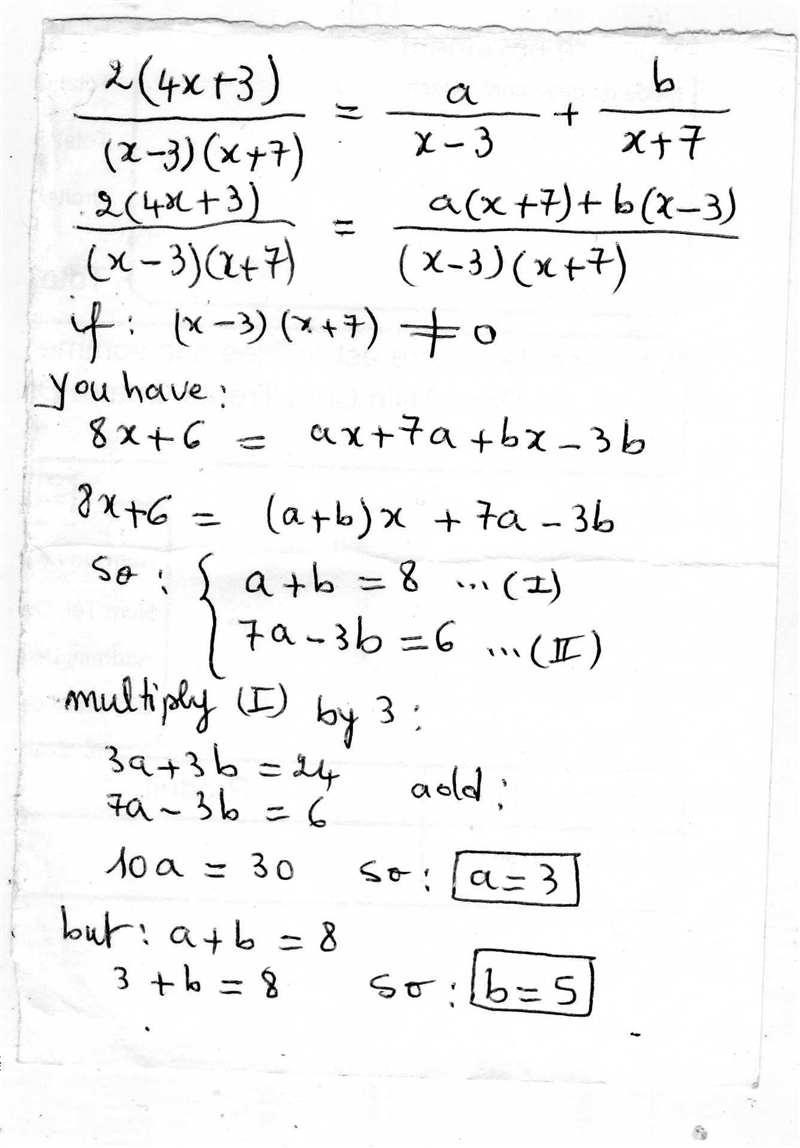 2(4x+3)/((x-3)(x+7)) = a/(x-3) + b/(x+7)
2(4x+3)/((x-3)(x+7)) = (a(x+7)+b(x-3))/((x-3)(x+7))
if: (x-3)(x+7) ≠ 0
you have:
8x+6 = ax+7a+bx-3b
8x+6 = (a+b)x + 7a-3b
so: { a+b = 8 ...(I)
7a-3b = 6 ...(II)
multiply (I) by 3:
3a+3b = 24
7a-3b = 6 add:
10a = 30 so: a=3
but: a+b = 8
3+b = 8 so: b=5